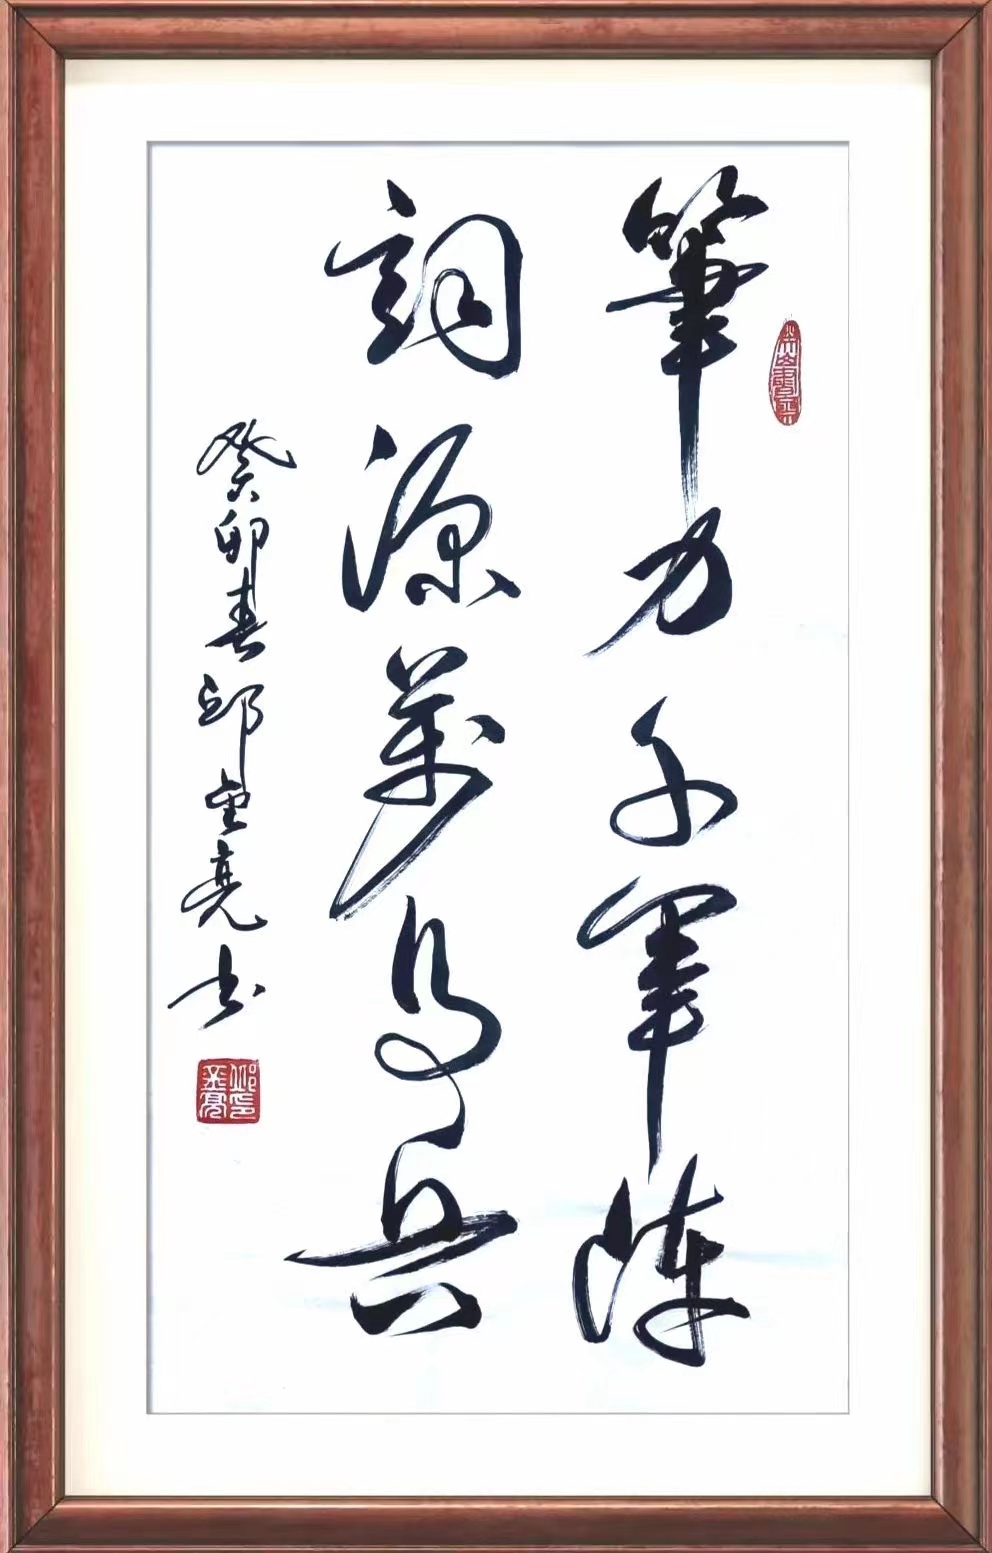 筆力千軍陣
詞源萬馬兵
癸卯春邱亮书